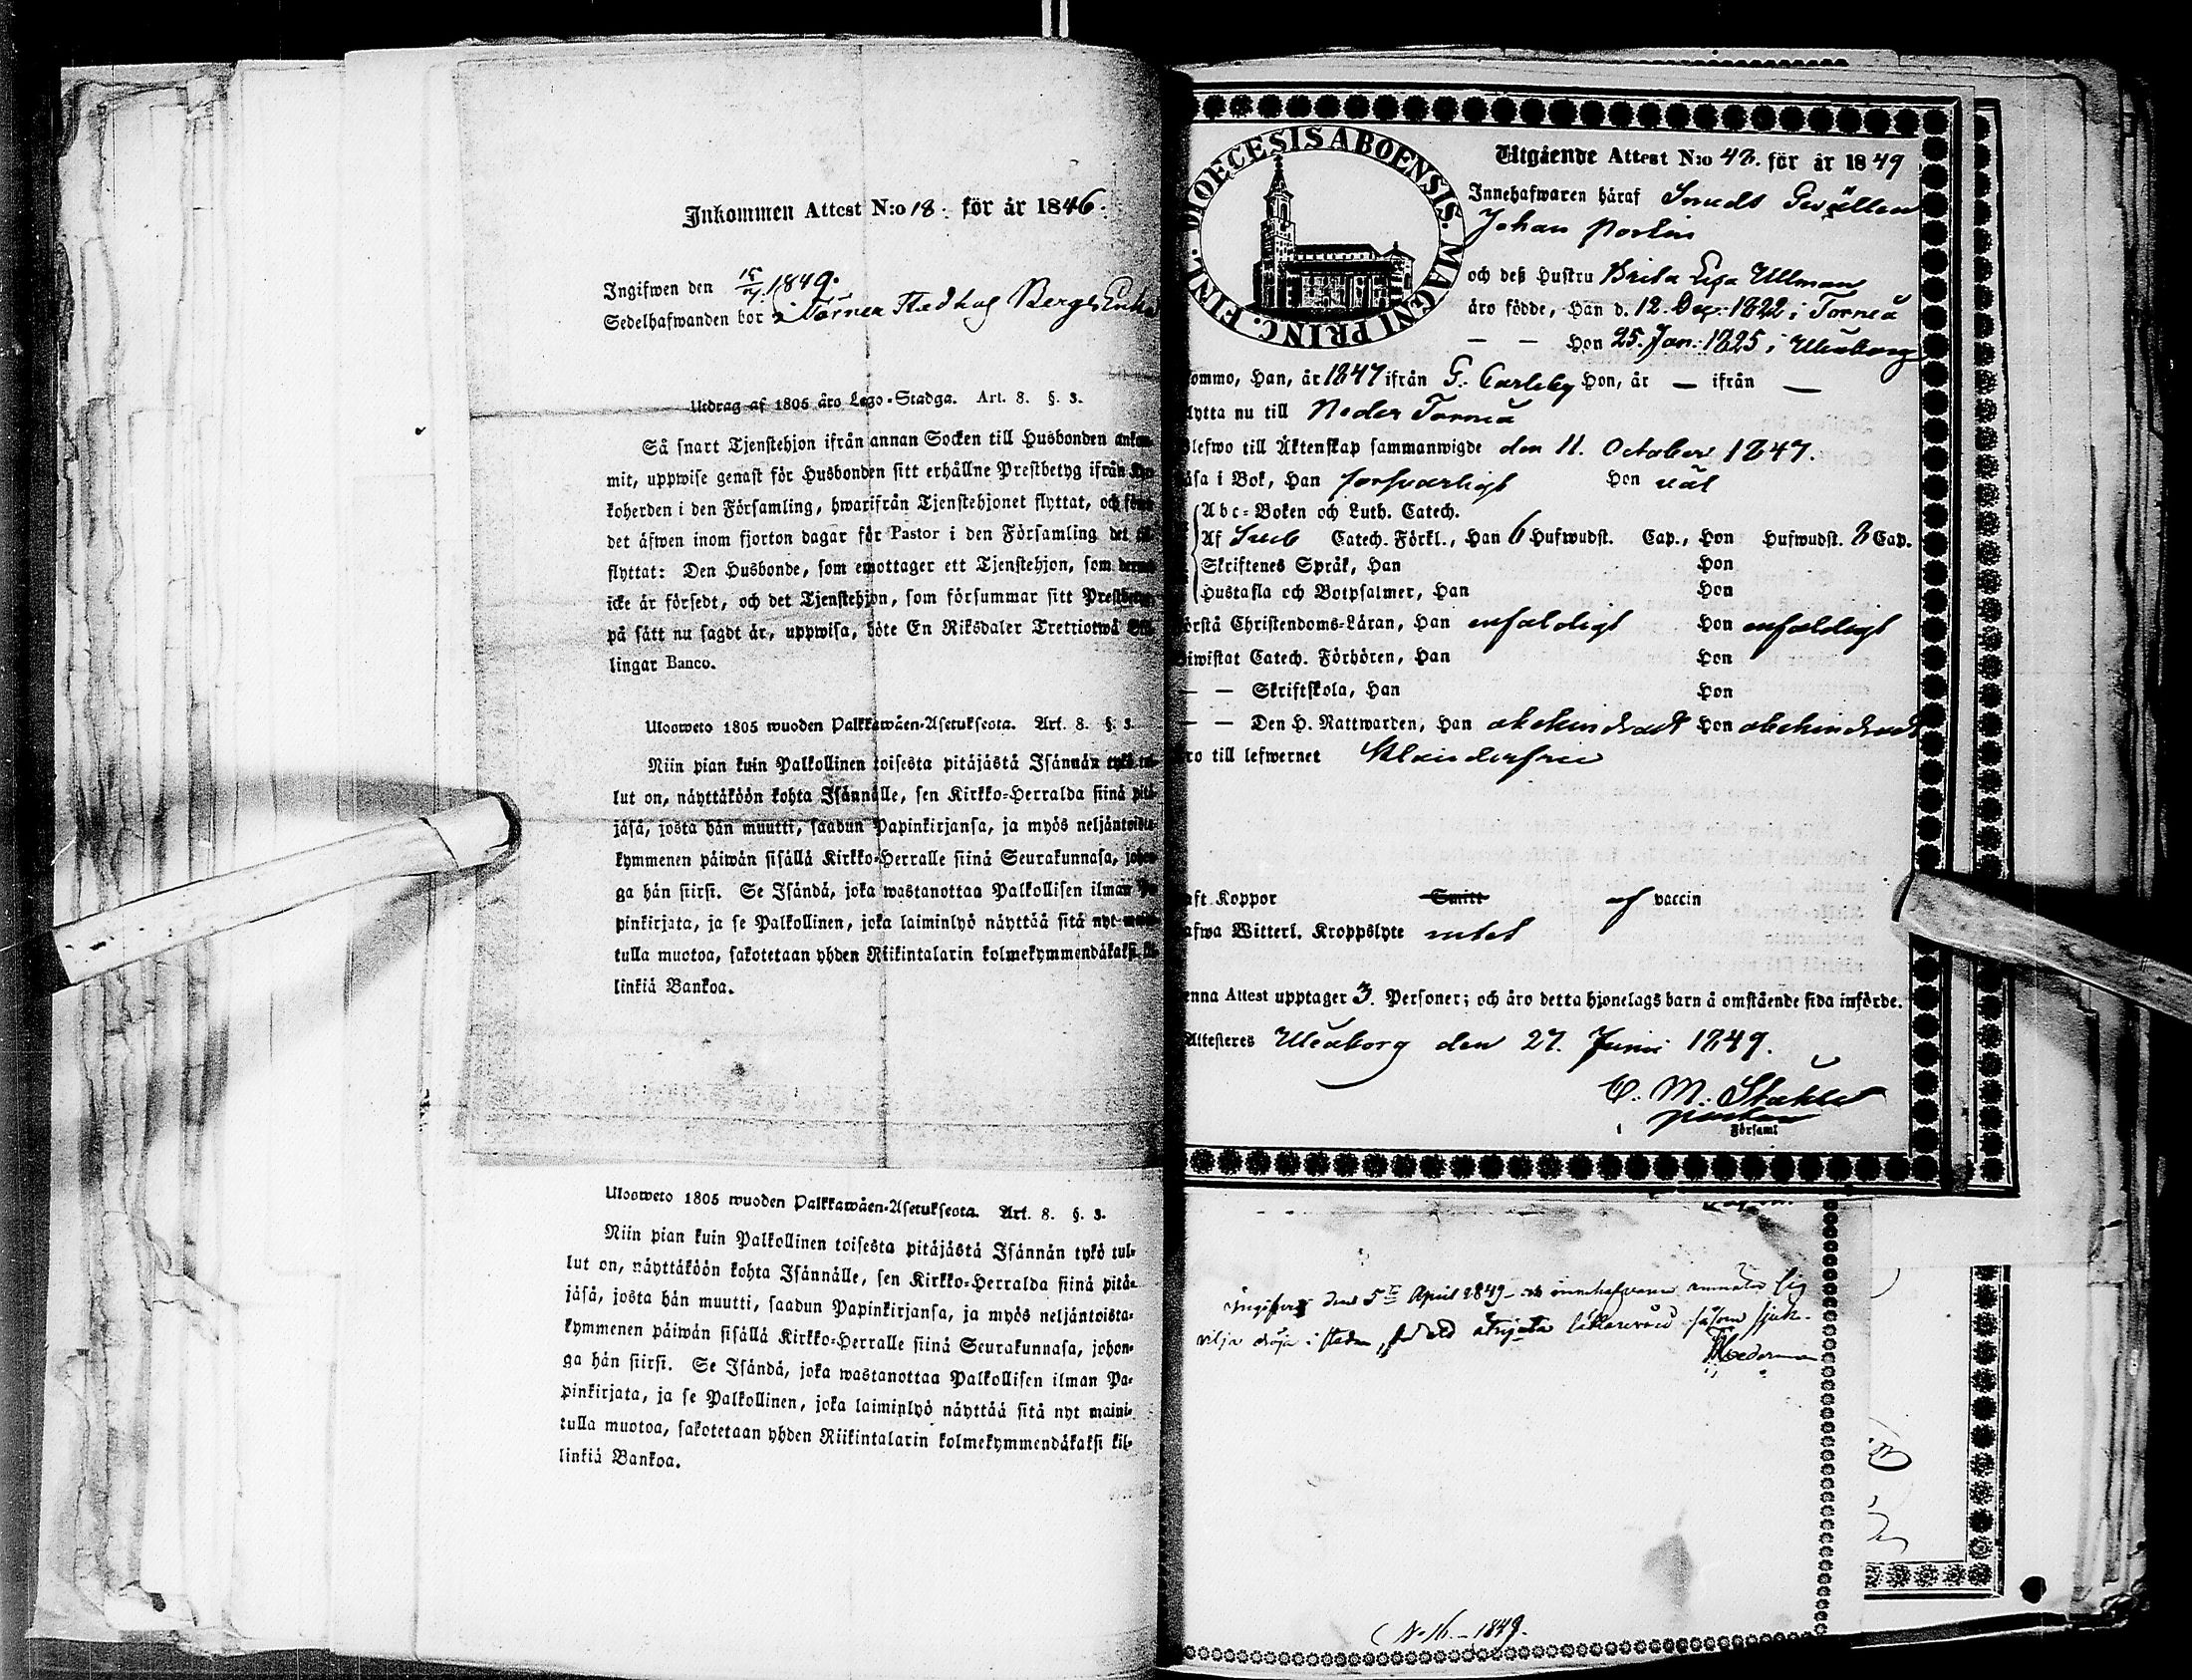 Inkommen Attest N:o 18. för år 1846.
Ingifwen den 15/7 1849.
Sedelhafwanden bor i Torneå Stad hos Bergs Enka
Utdrag af 1805 åro Lego-Stadga. Art. 8. §. 3.
Så snart Tjenstehjon ifrån annan Socken till Husbonden ankom-
mit, uppwise genast för Husbonden sitt erhållne Prestbetyg ifrån Kyr-
koherden i den Församling, hwarifrån Tjenstehjonet flyttat, och före
det äfwen inom fjorton dagar för Pastor i den Församling det til
flyttat: Den Husbonde, som emottager ett Tjenstehjon, som dermed
icke är försedt, och det Tjenstehjon, som försummar sitt Prestbetyg
på sätt nu sagdt är, uppwisa, böte En Riksdaler Trettiotwå Skil-
lingar Banco.
Ulosweto 1805 wuoden Palkkawäen-Asetuksesta. Art. 8. §. 3.
Niin pian kuin Palkollinen toisesta pitäjästä Isännän tykö tul-
lut on, näyttäköön kohta Isännälle, sen Kirkko-Herralda siinä pitä-
jäsä, josta hän muutti, saadun Papinkirjansa, ja myös neljäntoista-
kymmenen päiwän sisällä Kirkko-Herralle siinä Seurakunnasa, johon-
ga hän siirsi. Se Isändä, joka wastanottaa Palkollisen ilman Pa-
pinkirjata, ja se Palkollinen, joka laiminlyö näyttää sitä nyt maini-
tulla muotoa, sakotetaan yhden Riikintalarin kolmekymmendäkaksi kil-
linkiä Bankoa.
Ulosweto 1805 wuoden Palkkawäen-Asetuksesta. Art. 8. §. 3.
Niin pian kuin Palkollinen toisesta pitäjästä Isännän tykö tul-
lut on, näyttäköön kohta Isännälle, sen Kirkko-Herralda siinä pitä-
jäsä, josta hän muutti, saadun Papinkirjansa, ja myös neljäntoista-
kymmenen päiwän sisällä Kirkko-Herralle siinä Seurakunnasa, johon-
ga hän siirsi. Se Isändä, joka wastanottaa Palkollisen ilman Pa-
pinkirjata, ja se Palkollinen, joka laiminlyö näyttää sitä nyt maini-
tulla muotoa, sakotetaan yhden Riikintalarin kolmekymmendäkaksi kil-
linkiä Bankoa.
DIOECESIS ABOENSIS. MAGNI PRINC. FINL.
Utgående Attest N:o 42. för år 1849
Innehafwaren häraf Smeds Gesällen
Johan Portin
och deß Hustru Brita Lisa Ullman
äro födde, Han d. 12. Dec: 1822 i Torneå
— — Hon 25. Jan: 1825 i Uleåborg
ommo, Han, år 1847 ifrån G: Carleby Hon, år — ifrån —
lytta nu till Neder Torneå
Blefwo till Äktenskap sammanwigde den 11. October 1847.
äsa i Bok, Han försvarligt Hon väl
Abc-Boken och Luth. Catech.
Af Sveb Catech. Förkl., Han 6 Hufwudst. Cap., Hon Hufwudst. 8 Cap.
Skriftenes Språk, Han Hon
Hustafla och Botpsalmer, Han Hon
örstå Christendoms-Läran, Han enfaldigt Hon enfaldigt
Biwistat Catech. Förhören, Han Hon
— — Skriftskola, Han Hon
— — Den H. Nattwarden, Han obehindradt Hon obehindradt
ro till lefwernet Klanderfrie
aft Koppor Smitt af vaccin
afwa Witterl. Kroppslyte intet
enna Attest upptager 3. Personer; och äro detta hjonelags barn å omstående sida införde.
Attesteras Uleåborg den 27. Junii 1849.
C. M. Ståhle
pastor
i Församl
Ingifvit den 5te April 1849 innehafvaren sig
vilja dröja i staden, för att åtnjuta läkarevård såsom sjuk.
Hoederman
(No 16. – 1849.